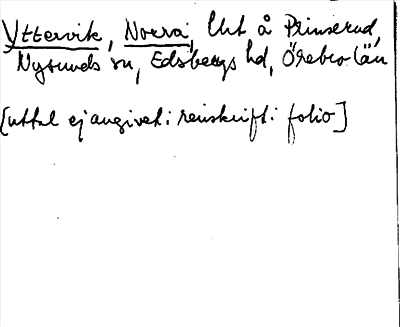 Yttervik, Norra, lht å Prinserud,
Nysunds sn, Edsbergs hd, Örebro län
[uttal ej angivet i renskrift i folio]